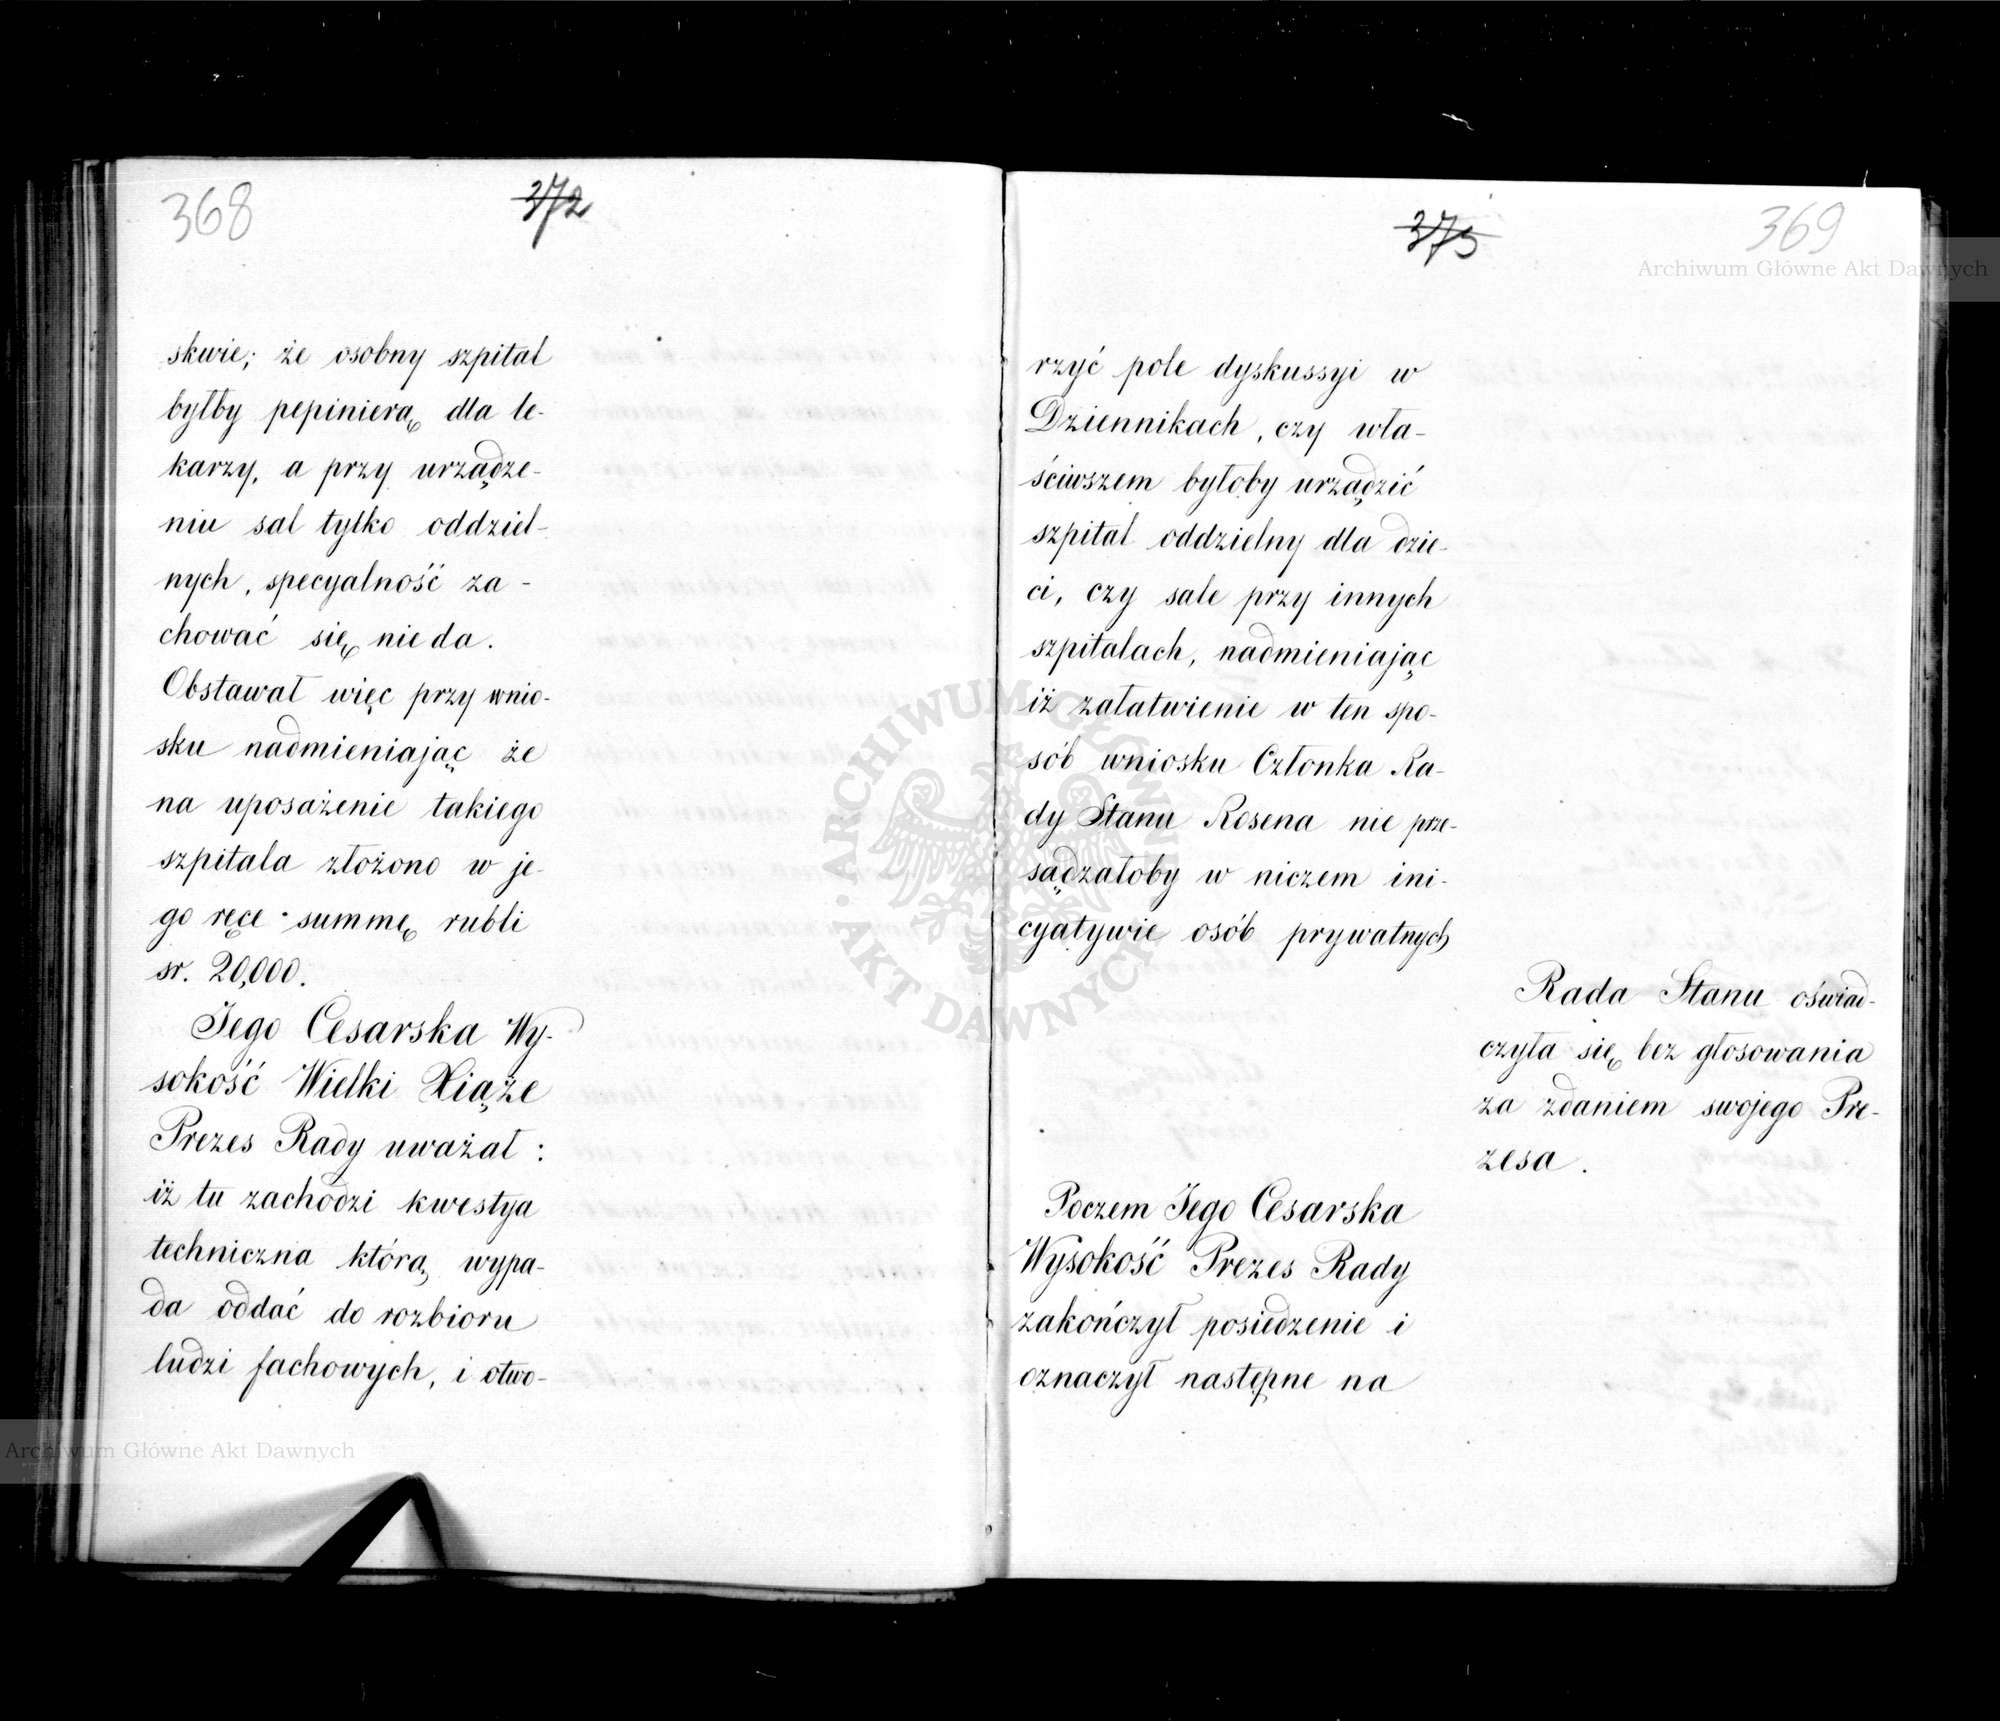 368
372
skwie; że osobny szpital
byłby pepinierą dla le-
karzy, a przy urządze-
niu sal tylko oddziel-
nych, specyalność za-
chować się nie da.
Obstawał więc przy wnio-
sku nadmieniając że
na uposażenie takiego
szpitala złożono w je-
go ręce summę rubli
sr. 20,000.
Jego Cesarska Wy-
sokość Wielki Xiąże
Prezes Rady uważał:
iż tu zachodzi kwestya
techniczna którą wypa-
da oddać do rozbioru
ludzi fachowych, i otwo-
375
369
rzyć pole dyskussyi w
Dziennikach, czy wła-
ściwszem byłoby urządzić
szpital oddzielny dla dzie-
ci, czy sale przy innych
szpitalach, nadmieniając
iż załatwienie w ten spo-
sób wniosku Członka Ra-
dy Stanu Rosena nie prze-
sądzałoby w niczem ini-
cyatywie osób prywatnych
Rada Stanu oświad-
czyła się bez głosowania
za zdaniem swojego Pre-
zesa.
Poczem Jego Cesarska
Wysokość Prezes Rady
zakończył posiedzenie i
oznaczył następne na
Archiwum Główne Akt Dawnych
Archiwum Główne Akt Dawnych
ARCHIWUM GŁÓWNE AKT DAWNYCH